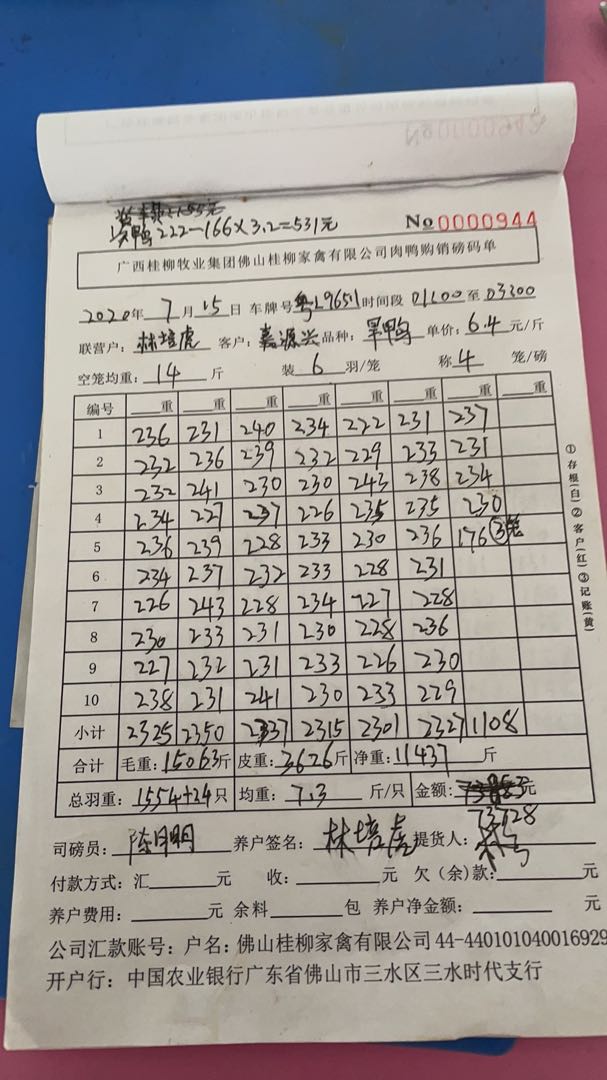 煲鸭222-166×3.2=531元
No 0000944
广西桂柳牧业集团佛山桂柳家禽有限公司肉鸭购销磅码单
2020年7月15日 车牌号粤L9651时间段01100至03300
联营户:林培虎 客户:嘉源兴 品种:旱鸭 单价:6.4元/斤
空笼均重:14斤 装6羽/笼 称4笼/磅
编号 重 重 重 重 重 重 重 重
1 236 231 240 234 222 231 237
2 232 236 239 232 229 233 231
3 232 241 230 230 243 238 234
4 234 227 237 226 235 235 230
5 236 239 228 233 230 236 176 ③笼
6 234 237 232 233 228 231
7 226 243 228 234 227 228
8 230 233 231 230 228 236
9 227 232 231 233 226 230
10 238 231 241 230 233 229
小计 2325 2350 2337 2315 2301 2327 1108
合计 毛重:15063斤 皮重:3626斤 净重:11437斤
总羽重:1554+24只 均重:7.3斤/只 金额:元
73728
司磅员:陈月明 养户签名:林培虎 提货人:
付款方式:汇元 收:元 欠(余)款:元
养户费用:元 余料包 养户净金额:元
公司汇款账号:户名:佛山桂柳家禽有限公司 44-440101040016929
开户行:中国农业银行广东省佛山市三水区三水时代支行
①存根(白)②客户(红)③记账(黄)